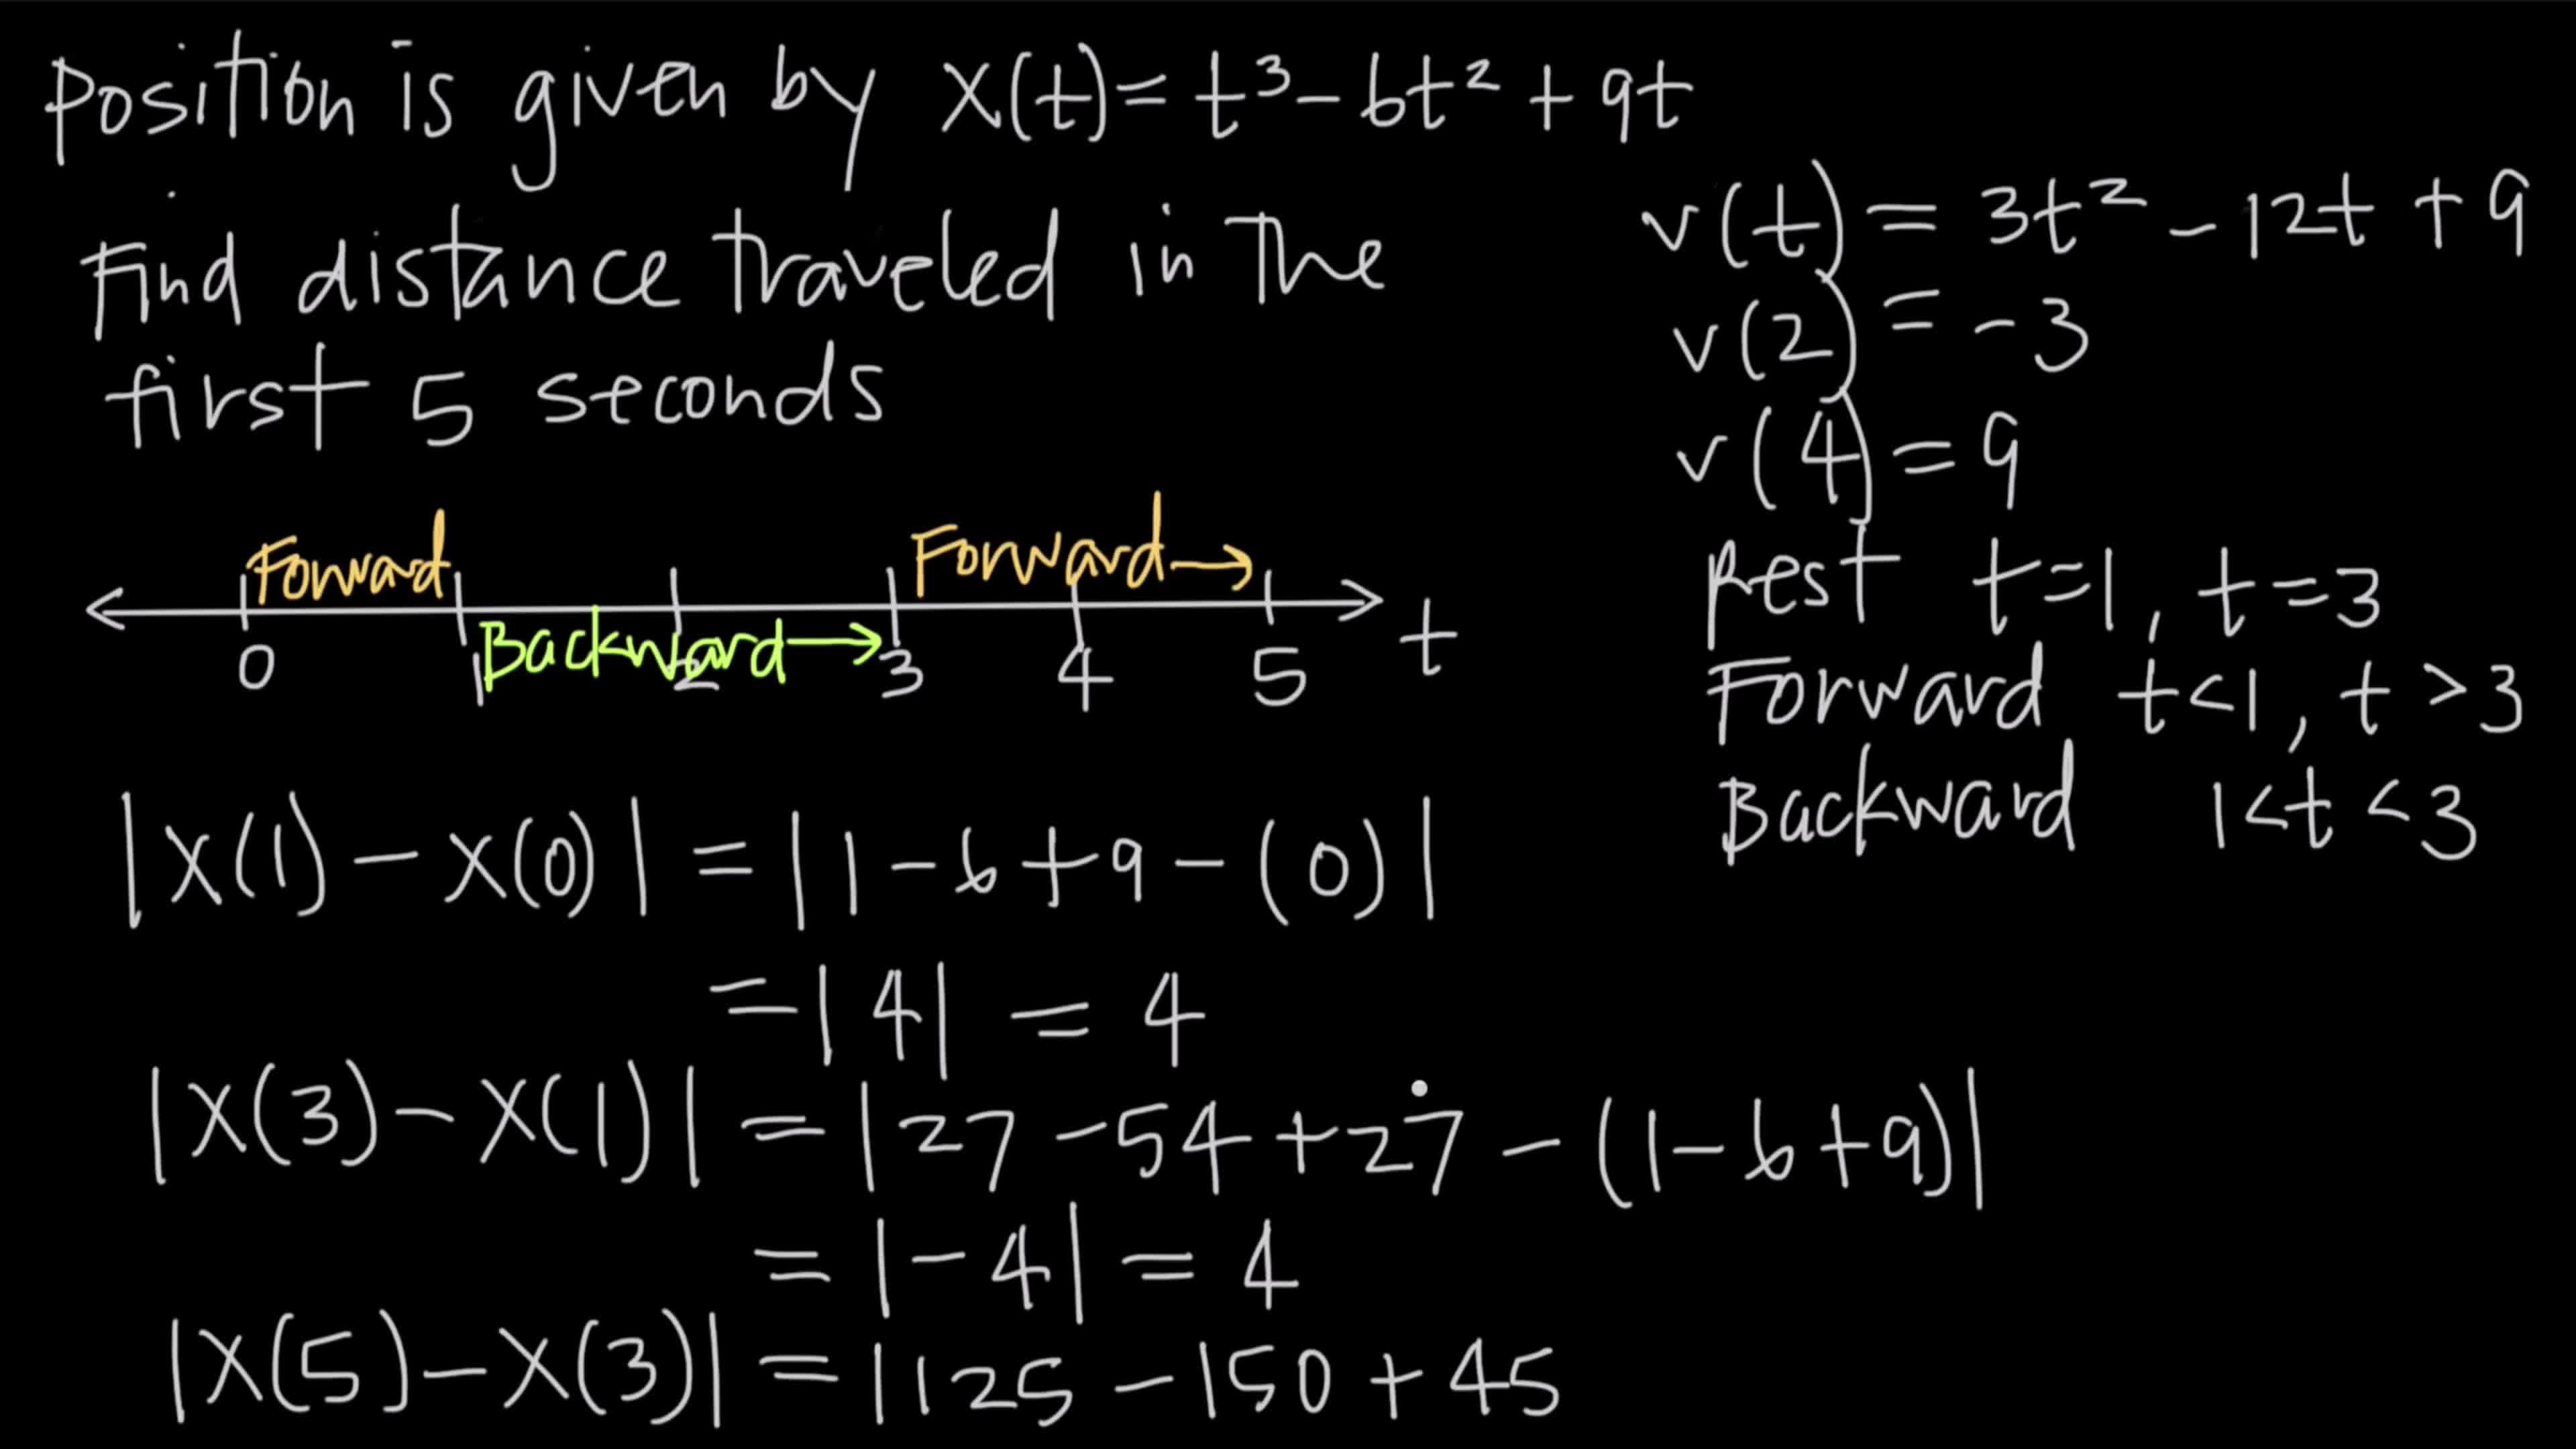 Position is given by x(t) = t³ - 6t² + 9t
Find distance traveled in the
first 5 seconds
v(t) = 3t² - 12t + 9
v(2) = -3
v(4) = 9
Rest t=1, t=3
Forward t<1, t>3
Backward 1<t<3
Forward Forward→
Backward→
0 1 2 3 4 5 t
|x(1) - x(0)| = |1 - 6 + 9 - (0)|
= |4| = 4
|x(3) - x(1)| = |27 - 54 + 27 - (1 - 6 + 9)|
= |-4| = 4
|x(5) - x(3)| = |125 - 150 + 45